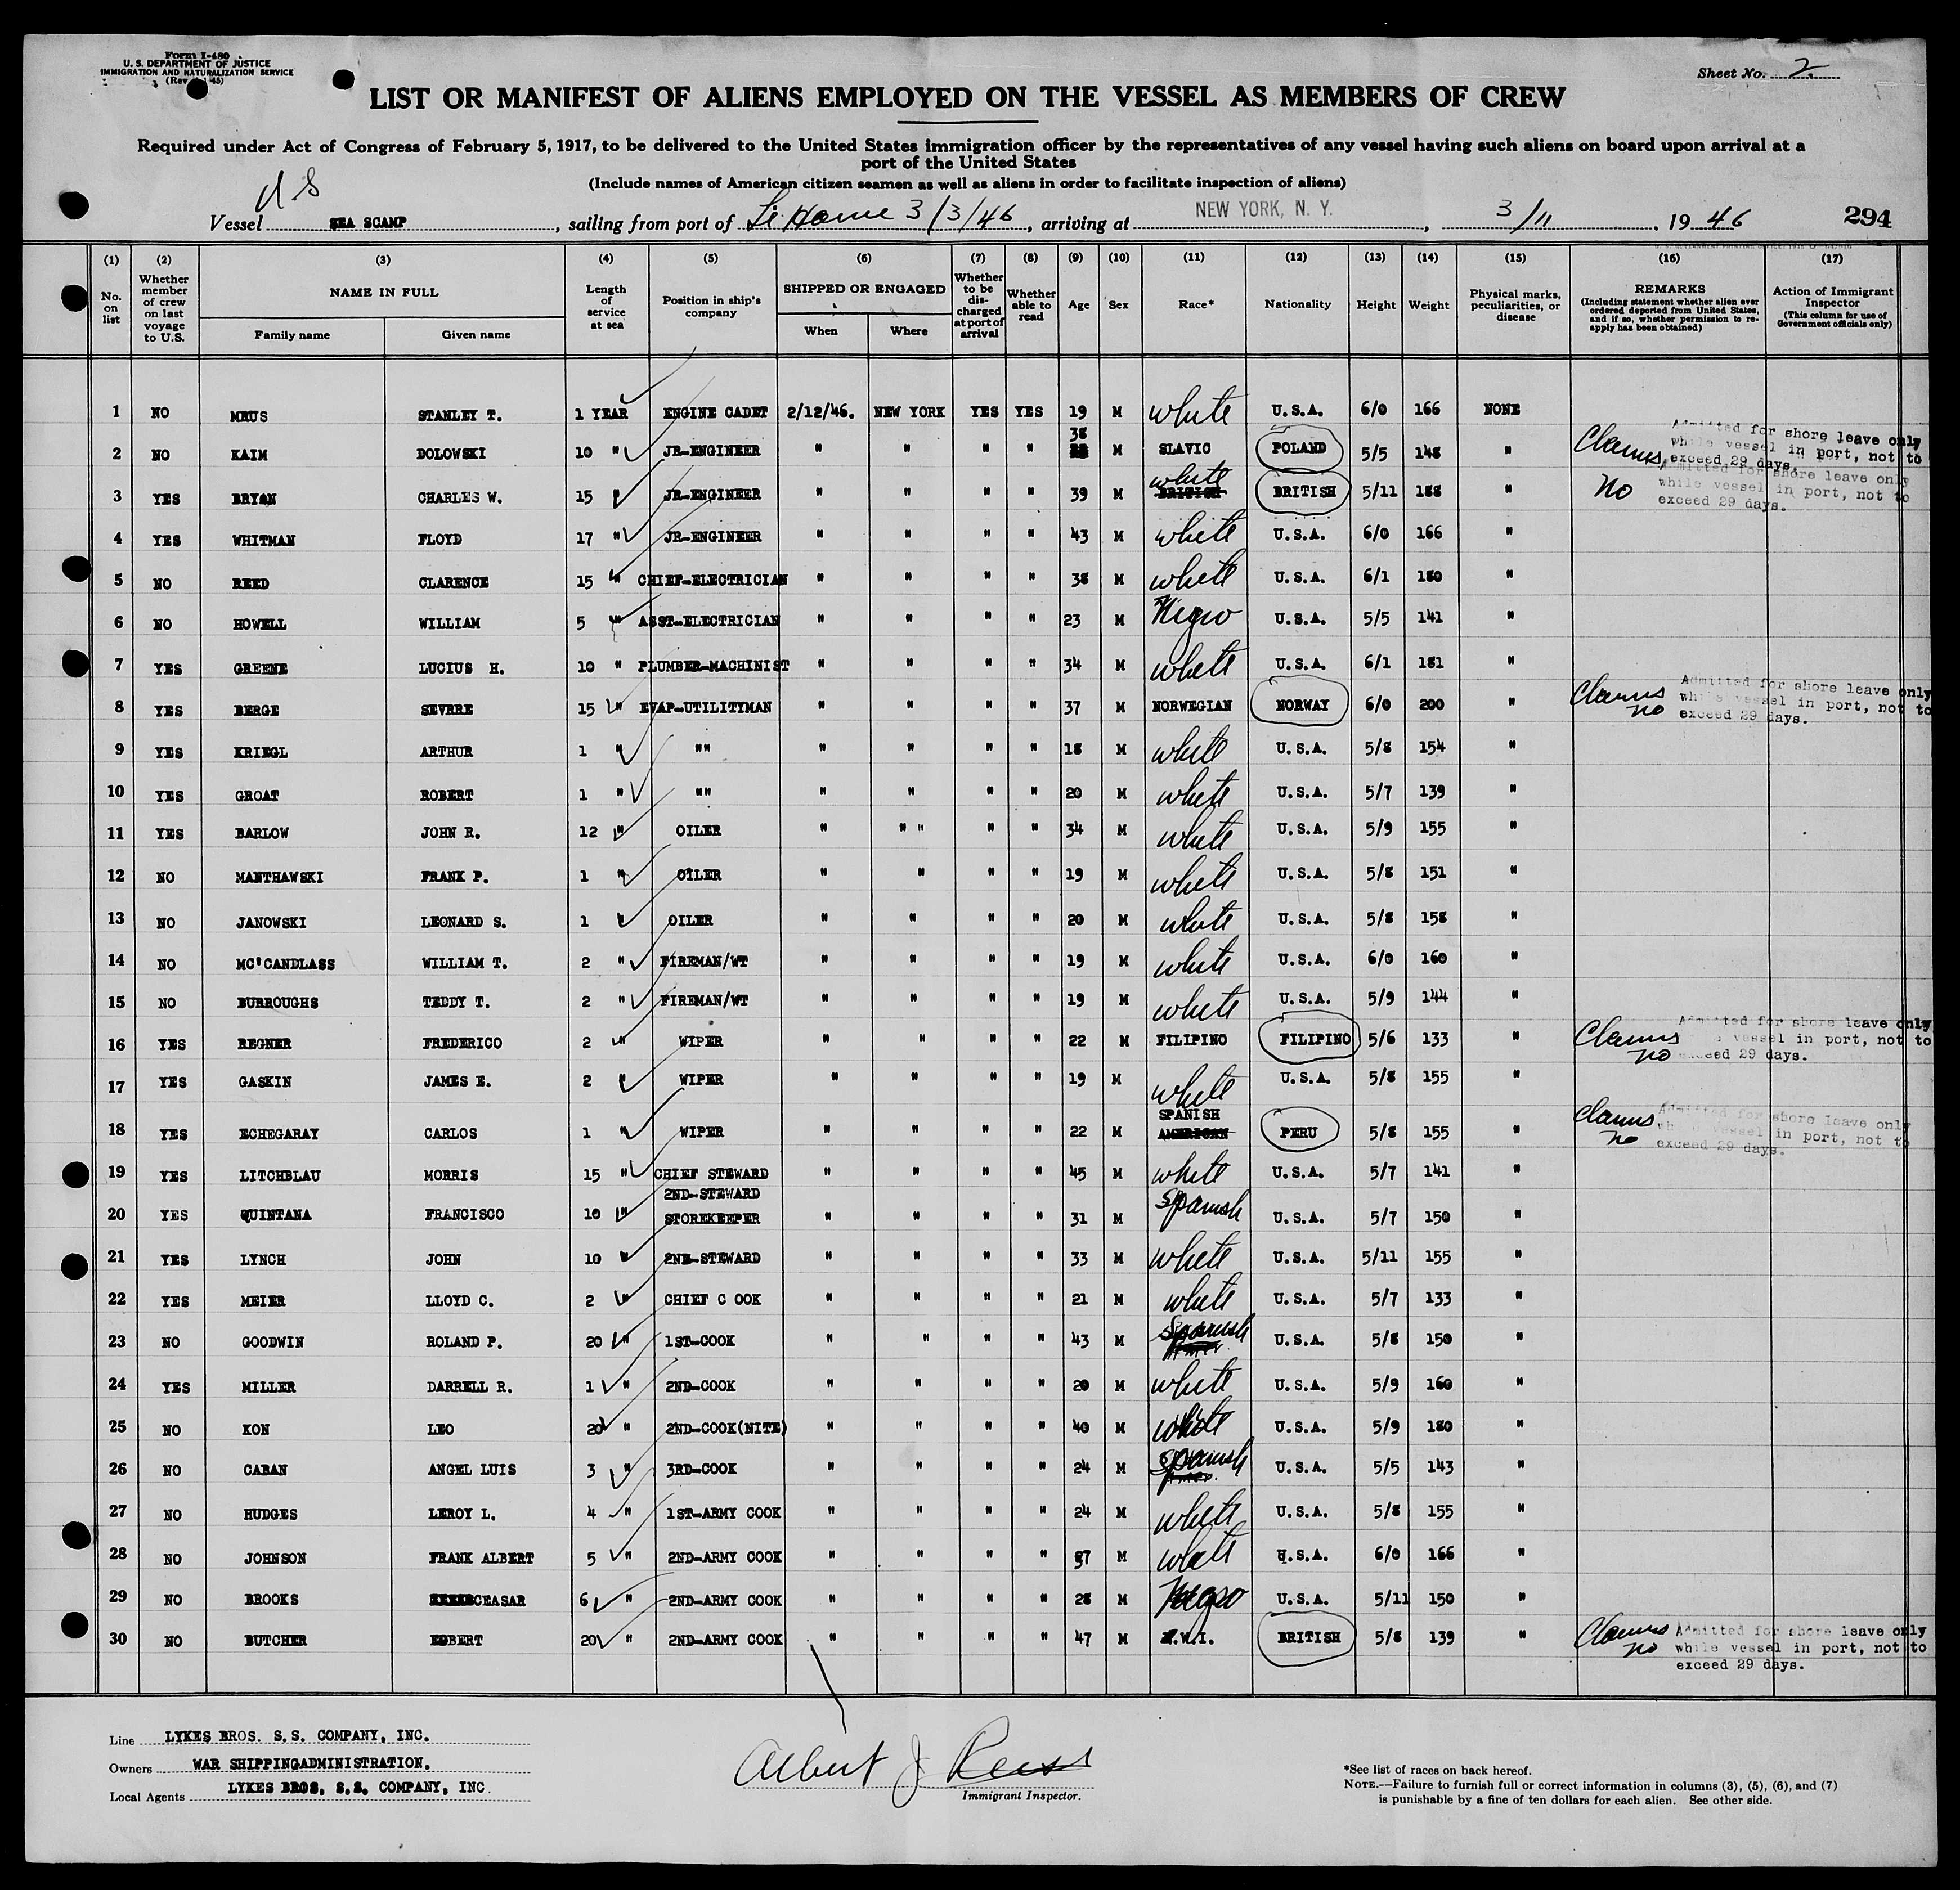 Form I-480
U. S. DEPARTMENT OF JUSTICE
IMMIGRATION AND NATURALIZATION SERVICE
Sheet No. 2
LIST OR MANIFEST OF ALIENS EMPLOYED ON THE VESSEL AS MEMBERS OF CREW
Required under Act of Congress of February 5, 1917, to be delivered to the United States immigration officer by the representatives of any vessel having such aliens on board upon arrival at a
port of the United States
(Include names of American citizen seamen as well as aliens in order to facilitate inspection of aliens)
US
Vessel SEA SCAMP, sailing from port of Le Havre 3/3/46, arriving at NEW YORK, N. Y., 3/11, 1946 294
(1) No. on list (2) Whether member of crew on last voyage to U.S. (3) NAME IN FULL Family name Given name (4) Length of service at sea (5) Position in ship's company (6) SHIPPED OR ENGAGED When Where (7) Whether to be discharged at port of arrival (8) Whether able to read (9) Age (10) Sex (11) Race* (12) Nationality (13) Height (14) Weight (15) Physical marks, peculiarities, or disease (16) REMARKS (Including statement whether alien ever ordered deported from United States, and if so, whether permission to reapply has been obtained) (17) Action of Immigrant Inspector (This column for use of Government officials only)
1 NO MRUS STANLEY T. 1 YEAR ENGINE CADET 2/12/46. NEW YORK YES YES 19 M white U.S.A. 6/0 166 NONE
2 NO KAIM DOLOWSKI 10 " JR-ENGINEER " " " " 38 M SLAVIC POLAND 5/5 148 " Claims Admitted for shore leave only while vessel in port, not to exceed 29 days.
3 YES BRYAN CHARLES W. 15 " JR-ENGINEER " " " " 39 M white BRITISH BRITISH 5/11 188 " No Admitted for shore leave only while vessel in port, not to exceed 29 days.
4 YES WHITMAN FLOYD 17 " JR-ENGINEER " " " " 43 M white U.S.A. 6/0 166 "
5 NO REED CLARENCE 15 " CHIEF-ELECTRICIAN " " " " 38 M white U.S.A. 6/1 180 "
6 NO HOWELL WILLIAM 5 " ASST-ELECTRICIAN " " " " 23 M Negro U.S.A. 5/5 141 "
7 YES GREENE LUCIUS H. 10 " PLUMBER-MACHINIST " " " " 34 M white U.S.A. 6/1 181 "
8 YES BERGE SEVRRE 15 " EVAP-UTILITYMAN " " " " 37 M NORWEGIAN NORWAY 6/0 200 " Claims no Admitted for shore leave only while vessel in port, not to exceed 29 days.
9 YES KRIEGL ARTHUR 1 " "" " " " " 18 M white U.S.A. 5/8 154 "
10 YES GROAT ROBERT 1 " "" " " " " 20 M white U.S.A. 5/7 139 "
11 YES BARLOW JOHN R. 12 " OILER " " " " " 34 M white U.S.A. 5/9 155 "
12 NO MANTHAWSKI FRANK P. 1 " OILER " " " " 19 M white U.S.A. 5/8 151 "
13 NO JANOWSKI LEONARD S. 1 " OILER " " " " 20 M white U.S.A. 5/8 158 "
14 NO MC'CANDLASS WILLIAM T. 2 " FIREMAN/WT " " " " 19 M white U.S.A. 6/0 160 "
15 NO BURROUGHS TEDDY T. 2 " FIREMAN/WT " " " " 19 M white U.S.A. 5/9 144 "
16 YES REGNER FREDERICO 2 " WIPER " " " " 22 M FILIPINO FILIPINO 5/6 133 " Claims no Admitted for shore leave only vessel in port, not to exceed 29 days.
17 YES GASKIN JAMES E. 2 " WIPER " " " " 19 M white U.S.A. 5/8 155 "
18 YES ECHEGARAY CARLOS 1 " WIPER " " " " 22 M SPANISH AMERICAN PERU 5/8 155 " Claims no Admitted for shore leave only while vessel in port, not to exceed 29 days.
19 YES LITCHBLAU MORRIS 15 " CHIEF STEWARD " " " " 45 M white U.S.A. 5/7 141 "
20 YES QUINTANA FRANCISCO 10 " 2ND-STEWARD STOREKEEPER " " " " 31 M Spanish U.S.A. 5/7 150 "
21 YES LYNCH JOHN 10 " 2ND-STEWARD " " " " 33 M white U.S.A. 5/11 155 "
22 YES MEIER LLOYD C. 2 " CHIEF C OOK " " " " 21 M white U.S.A. 5/7 133 "
23 NO GOODWIN ROLAND P. 20 " 1ST-COOK " " " " 43 M Spanish U.S.A. 5/8 150 "
24 YES MILLER DARRELL R. 1 " 2ND-COOK " " " " 20 M white U.S.A. 5/9 160 "
25 NO KON LEO 20 " 2ND-COOK(NITE) " " " " 40 M white U.S.A. 5/9 180 "
26 NO CABAN ANGEL LUIS 3 " 3RD-COOK " " " " 24 M Spanish U.S.A. 5/5 143 "
27 NO HUDGES LEROY L. 4 " 1ST-ARMY COOK " " " " 24 M white U.S.A. 5/8 155 "
28 NO JOHNSON FRANK ALBERT 5 " 2ND-ARMY COOK " " " " 37 M white U.S.A. 6/0 166 "
29 NO BROOKS CEASAR 6 " 2ND-ARMY COOK " " " " 28 M Negro U.S.A. 5/11 150 "
30 NO BUTCHER EGBERT 20 " 2ND-ARMY COOK " " " " 47 M W.I. BRITISH 5/8 139 " Claims no Admitted for shore leave only while vessel in port, not to exceed 29 days.
Line LYKES BROS. S.S. COMPANY, INC.
Owners WAR SHIPPINGADMINISTRATION.
Local Agents LYKES BROS. S.S. COMPANY, INC.
Albert J Reiss
Immigrant Inspector.
*See list of races on back hereof.
NOTE.—Failure to furnish full or correct information in columns (3), (5), (6), and (7)
is punishable by a fine of ten dollars for each alien. See other side.